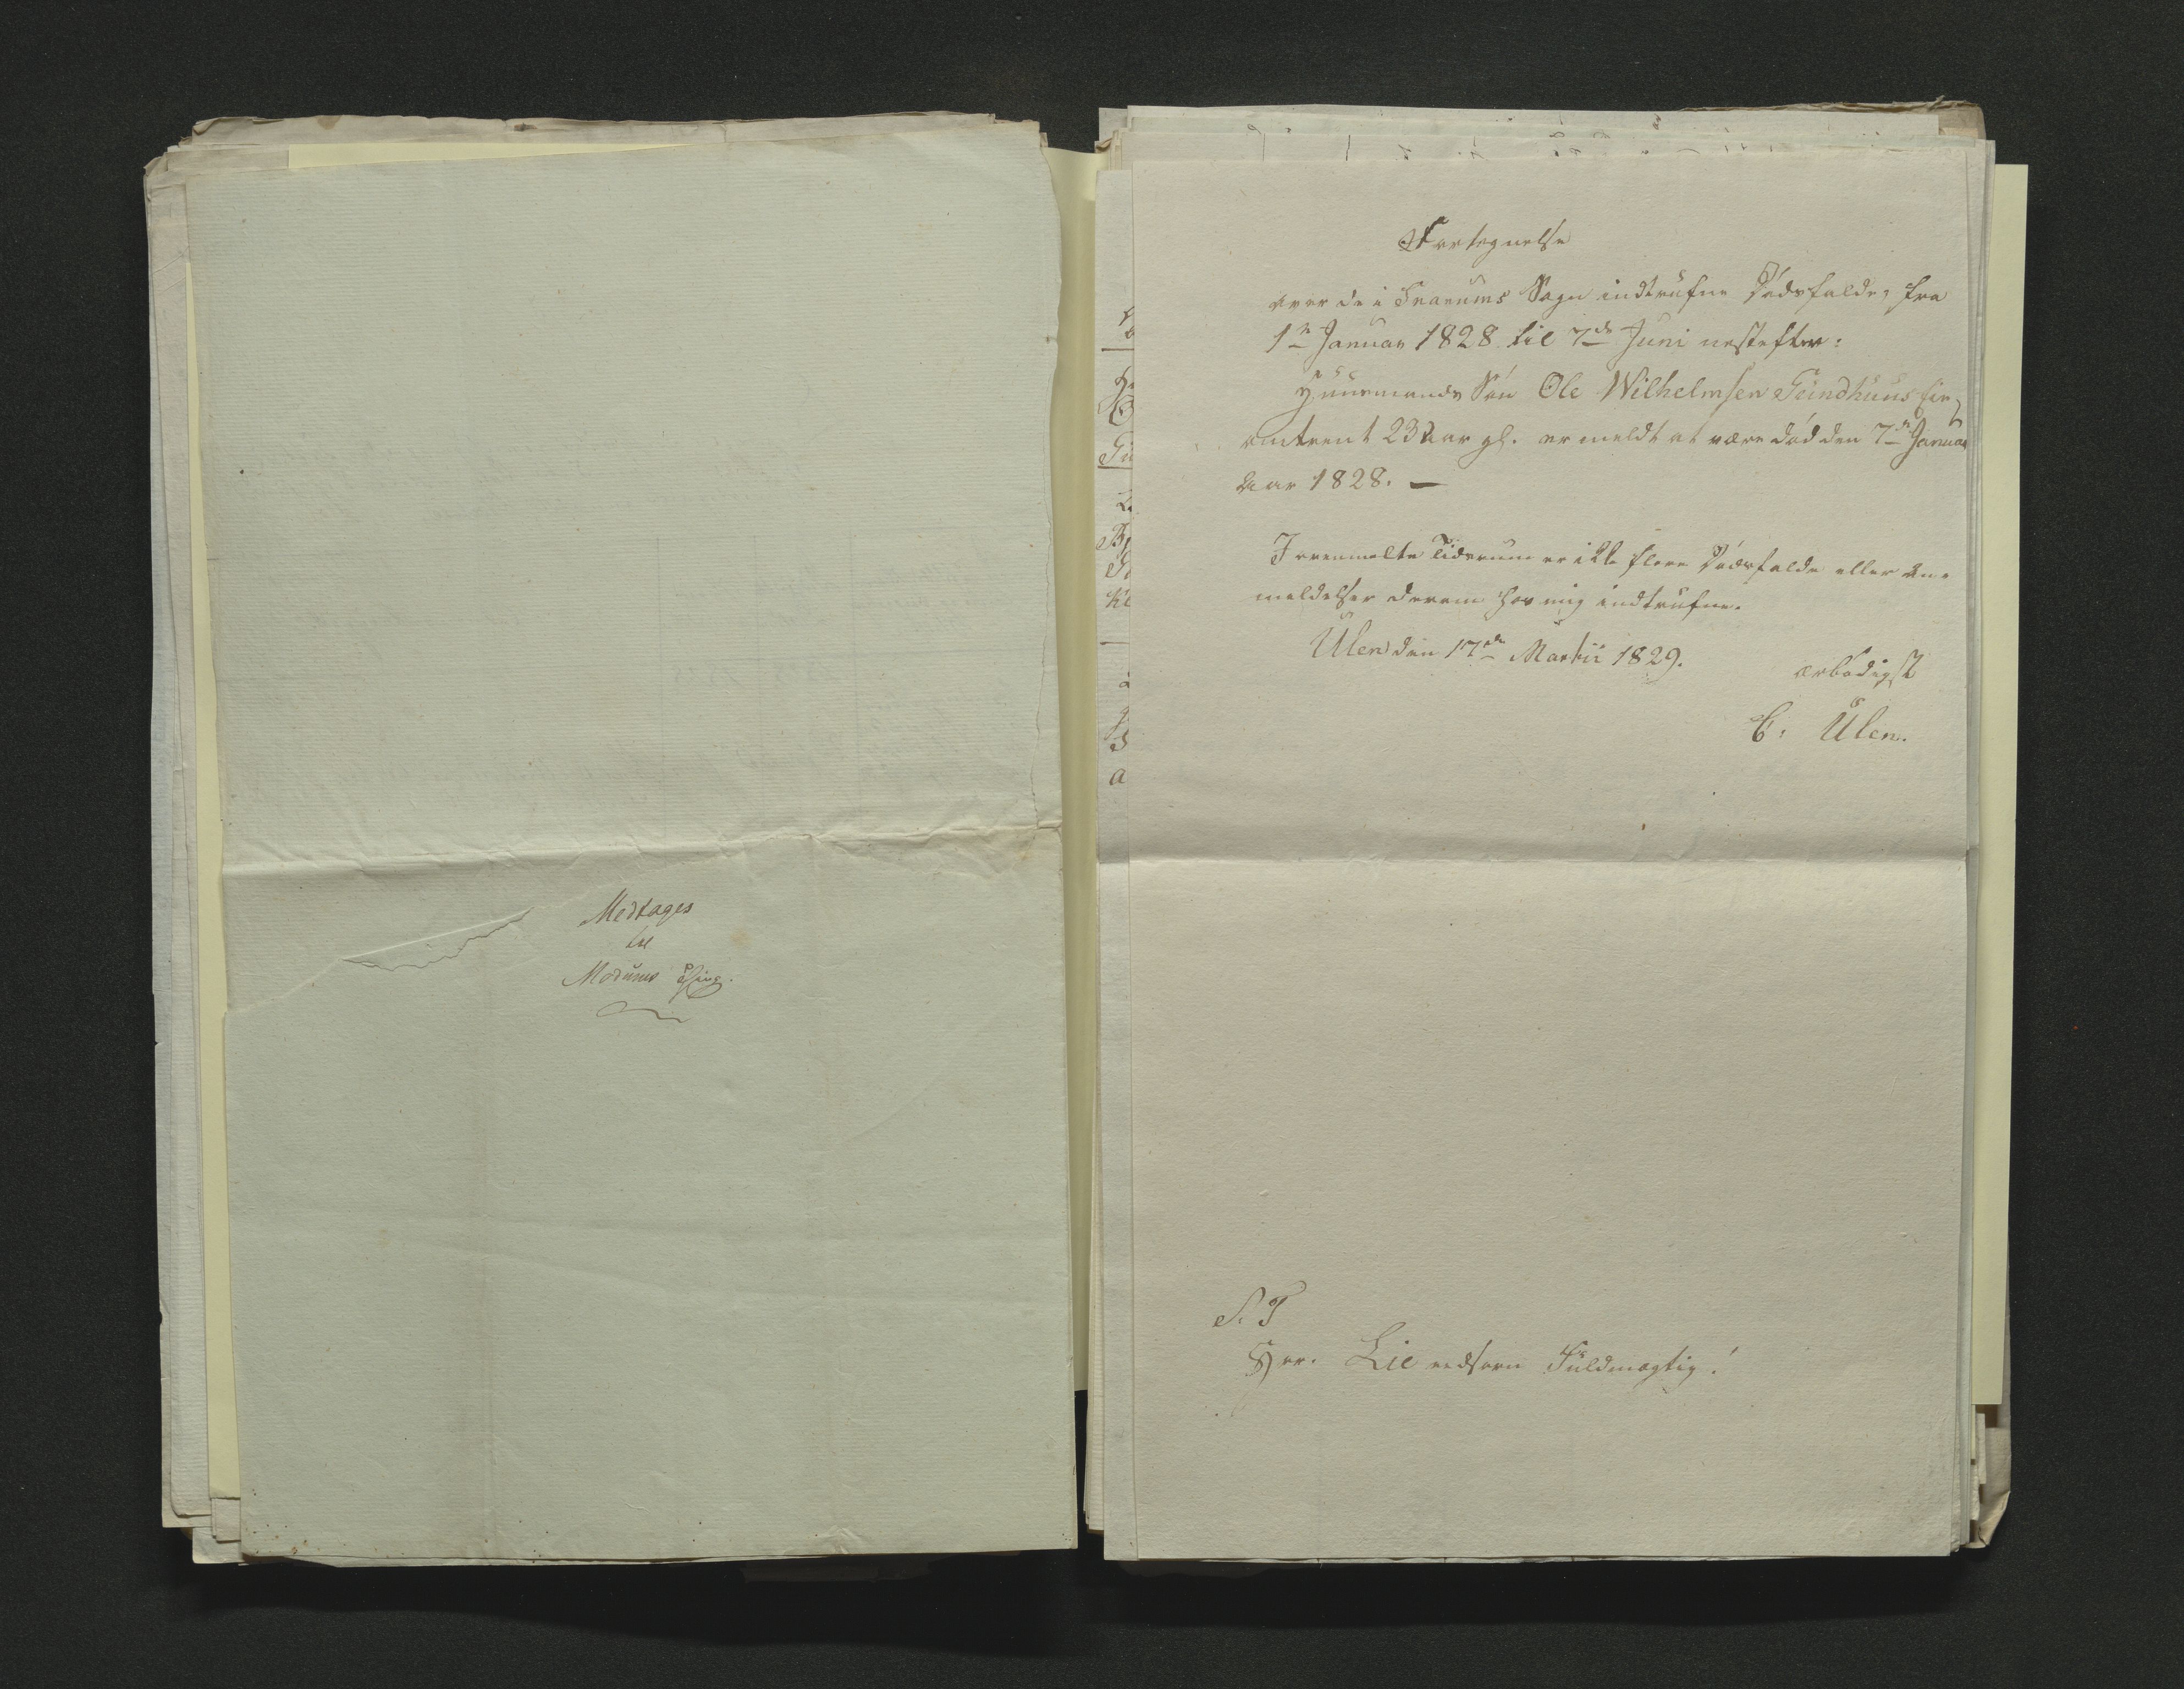 Medtages
til
Modums Thing.
Fortegnelse
over de i Snarums Sogn indtrufne Dødsfalde, fra
1te Januar 1828 til 7de Juni nestefter:
Huusmands Søn Ole Wilhelmsen Gundhuus
omtrent 23 Aar gl. er meldt at være død den 7de Januar
Aar 1828. —
I ovenmelte Tidsrum er ikke flere Dødsfalde eller An-
meldelser derom hos mig indtrufne.
Ulen den 17de Martii 1829.
ærbødigst
C. Ulen.
S. T
Herr. Lie edsorn Fuldmægtig!